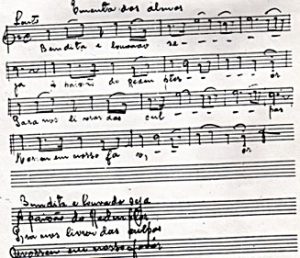 Ementa das almas
Lento
Bendita e louvado se
ja a paixão do Redemptor
Para nos livrar das culpas
em nosso fa
Bemdita e louvada seja
A paixão do Redemptor
Para nos livrar das culpas
em nosso